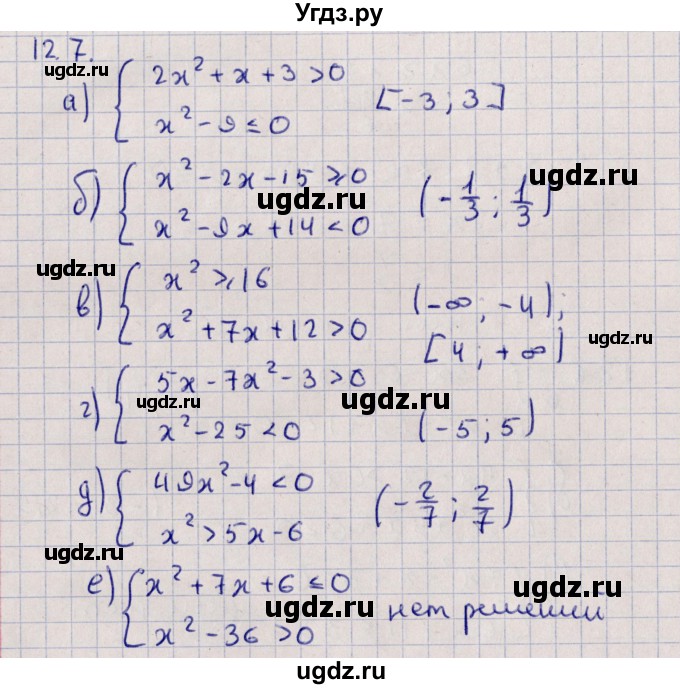 Угдз.ру
12.7.
ugdz.ru
а) { 2x² + x + 3 > 0
x² - 9 ≤ 0
[-3; 3]
ugdz.ru
б) { x² - 2x - 15 ≥ 0
x² - 9x + 14 < 0
(-1/3; 1/3)
ugdz.ru
ugdz.ru
ugdz.ru
в) { x² ≥ 16
x² + 7x + 12 > 0
(-∞; -4);
[4; +∞)
ugdz.ru
г) { 5x - 7x² - 3 > 0
x² - 25 < 0
(-5; 5)
ugdz.ru
ugdz.ru
д) { 49x² - 4 < 0
x² > 5x - 6
(-2/7; 2/7)
ugdz.ru
е) { x² + 7x + 6 ≤ 0
x² - 36 > 0
нет решений
ugdz.ru
ugdz.ru
ugdz.ru